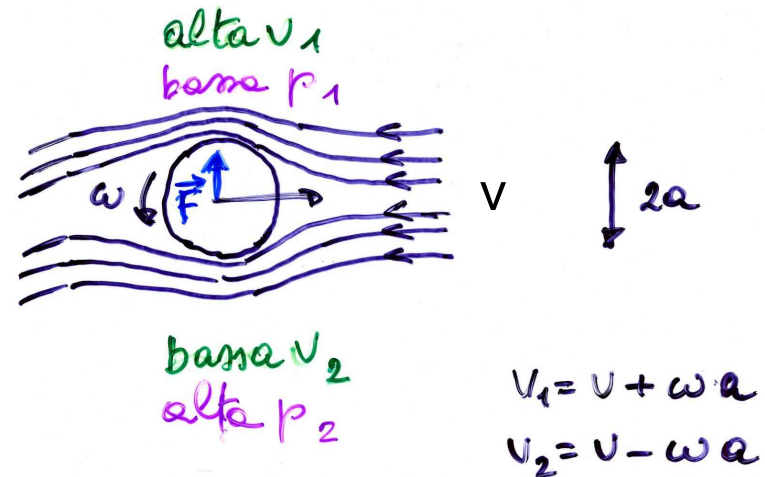 alta v₁
bassa p₁
ω
F
V
2a
bassa v₂
alta p₂
v₁ = v + ω a
v₂ = v - ω a